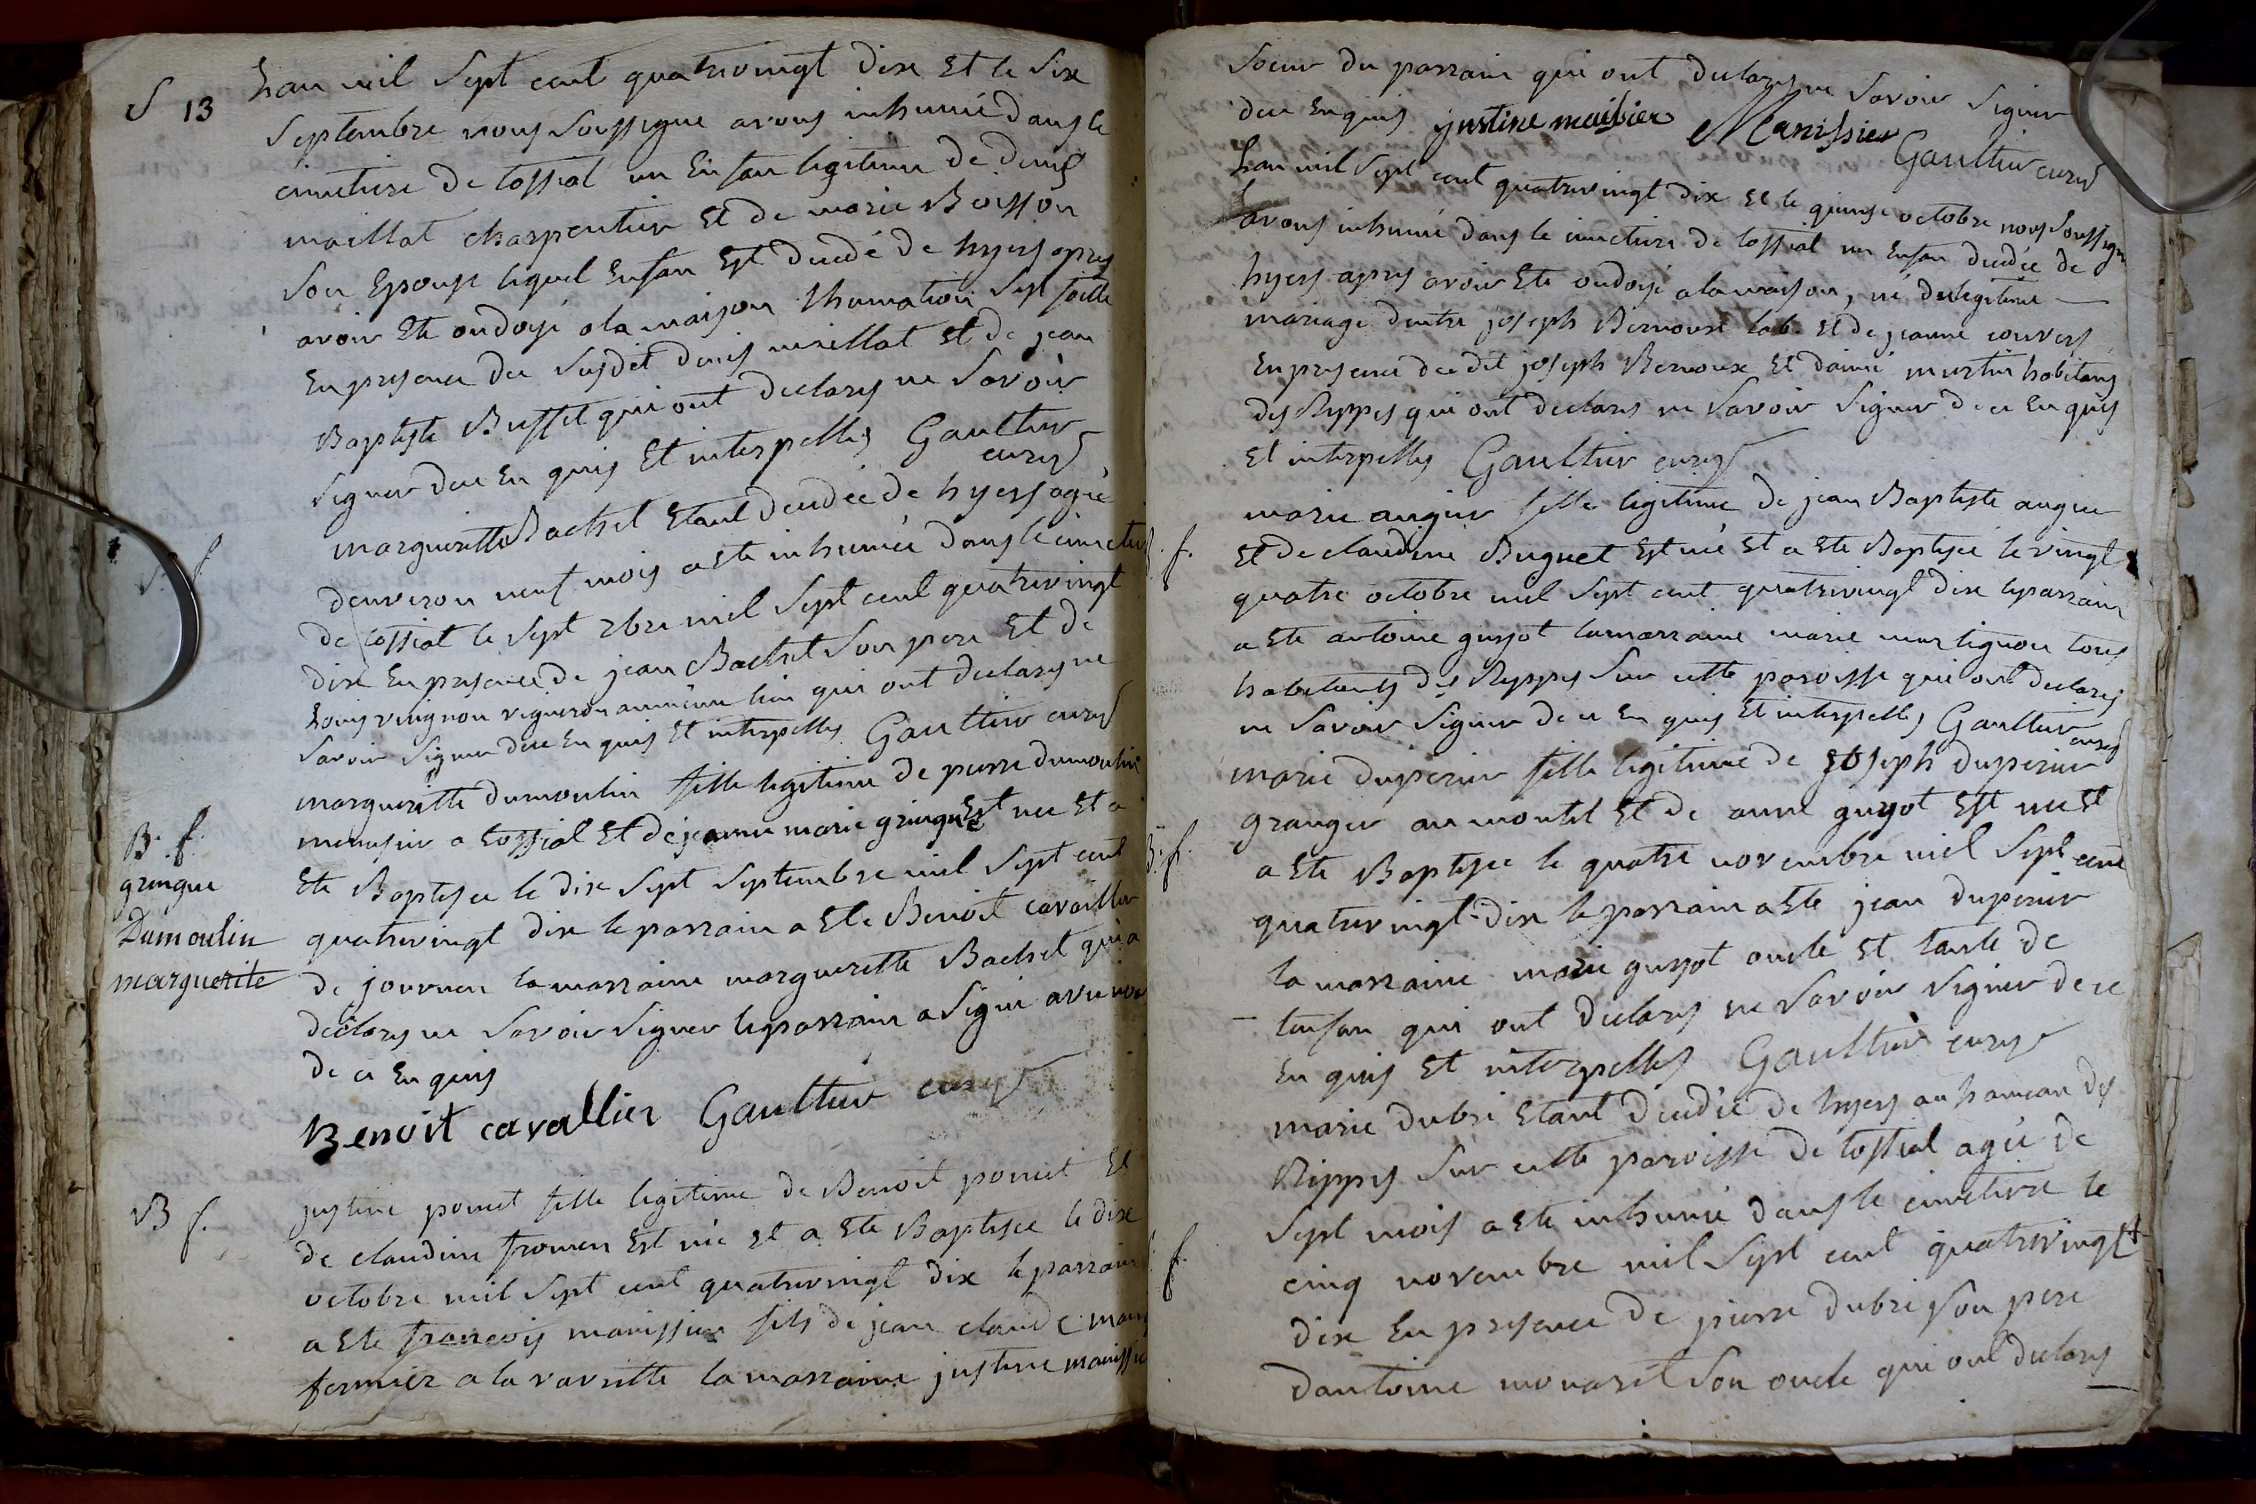 S 13
Lan mil Sept cent quatrevingt dix et le Six
Septembre nous soussigne avons inhumé dans le
cimetiere de tossiat un enfan legitime de denis
maillat charpentier et de marie Boisson
Son Epouse lequel enfan Est decedé de hyers apres
avoir Ete ondoyé a la maison lhumation Sest faitte
En presence du Susdit denis maillat et de jean
Baptiste Buffet qui ont declarés ne Savoir
Signer dece En quis Et interpellés Gaultier
curé
marguerithe Bachet Etant decedée de hyers agée
denviron neuf mois a ete inhumée dans le cimetier
de tossiat le sept 7bre mil Sept cent quatrevingt
dix En presence de jean Bachet Son pere Et de
Louis vuignon vigneron au même lieu qui ont declarés ne
Savoir Signer dece En quis Et interpellés Gaultier curé
B. f.
gringue
Dumoulin
marguerite
margueritte dumoulin fille legitime de pierre dumoulin
menusier a tossiat Et de jeanne marie gringue Est née Et a
Ete Baptisée le dix Sept Septembre mil Sept cent
quatrevingt dix le parrain a Ete Benoit cavallier
de journan la marraine marguerette Bachet qui a
declarés ne Savoir Signer le parrain a Signé avec nous
de ce En quis
Benoit cavallier Gaultier curé
B f.
justine poncet fille legitime de Benoit poncet Et
de claudine fromen Est née et a Ete Baptisée le dix
octobre mil Sept cent quatrevingt dix le parrain
a Ete francois manissier fils de jean claude man
fermier a la vavrette la marraine justine manissie
Soeur du parrain qui ont declarés ne Savoir Signer
dece Enquis justine manisier Manissier
Gaultier curé
Lan mil Sept cent quatrevingt dix Et le quinse octobre nous Soussigne
avons inhumé dans le cimetiere de tossiat un Enfan decedée de
hyers apres avoir Ete ondoyé a la maison, né du legitime
mariage dentre joseph Bernoux lab. Et de jeanne convers
En presence du dit joseph Bernoux Et daimé martin habitans
des Rippes qui ont declarés ne Savoir Signer de ce En quis
Et interpellés Gaultier curé
f.
marie augier fille legitime de jean Baptiste augier
Et de claudine Buguet Est née Et a Ete Baptisée le vingt
quatre octobre mil Sept cent quatrevingt dix le parrain
a Ete antoine guyot la marraine marie martignon tous
habitants des Ryppes Sur cette paroisse qui ont declarés
ne Savoir Signer de ce En quis Et interpellés Gaultier
curé
B. f.
marie duperier fille legitime de joseph duperier
granger au montel Et de anne guyot Est née Et
a Ete Baptisée le quatre novembre mil Sept cent
quatrevingt-dix le parrain a Ete jean duperier
la marraine marie guyot oncle Et tante de
lenfan qui ont declarés ne Savoir Signer de ce
En quis Et interpellés Gaultier curé
f.
marie dubri Etant decedée de hyers au hameau des
Rippes Sur cette paroisse de tossiat agée de
Sept mois a Ete inhumée dans le cimetiere le
cinq novembre mil Sept cent quatrevingt
dix En presence de pierre dubri Son pere
dantoine monaret Son oncle qui ont declarés